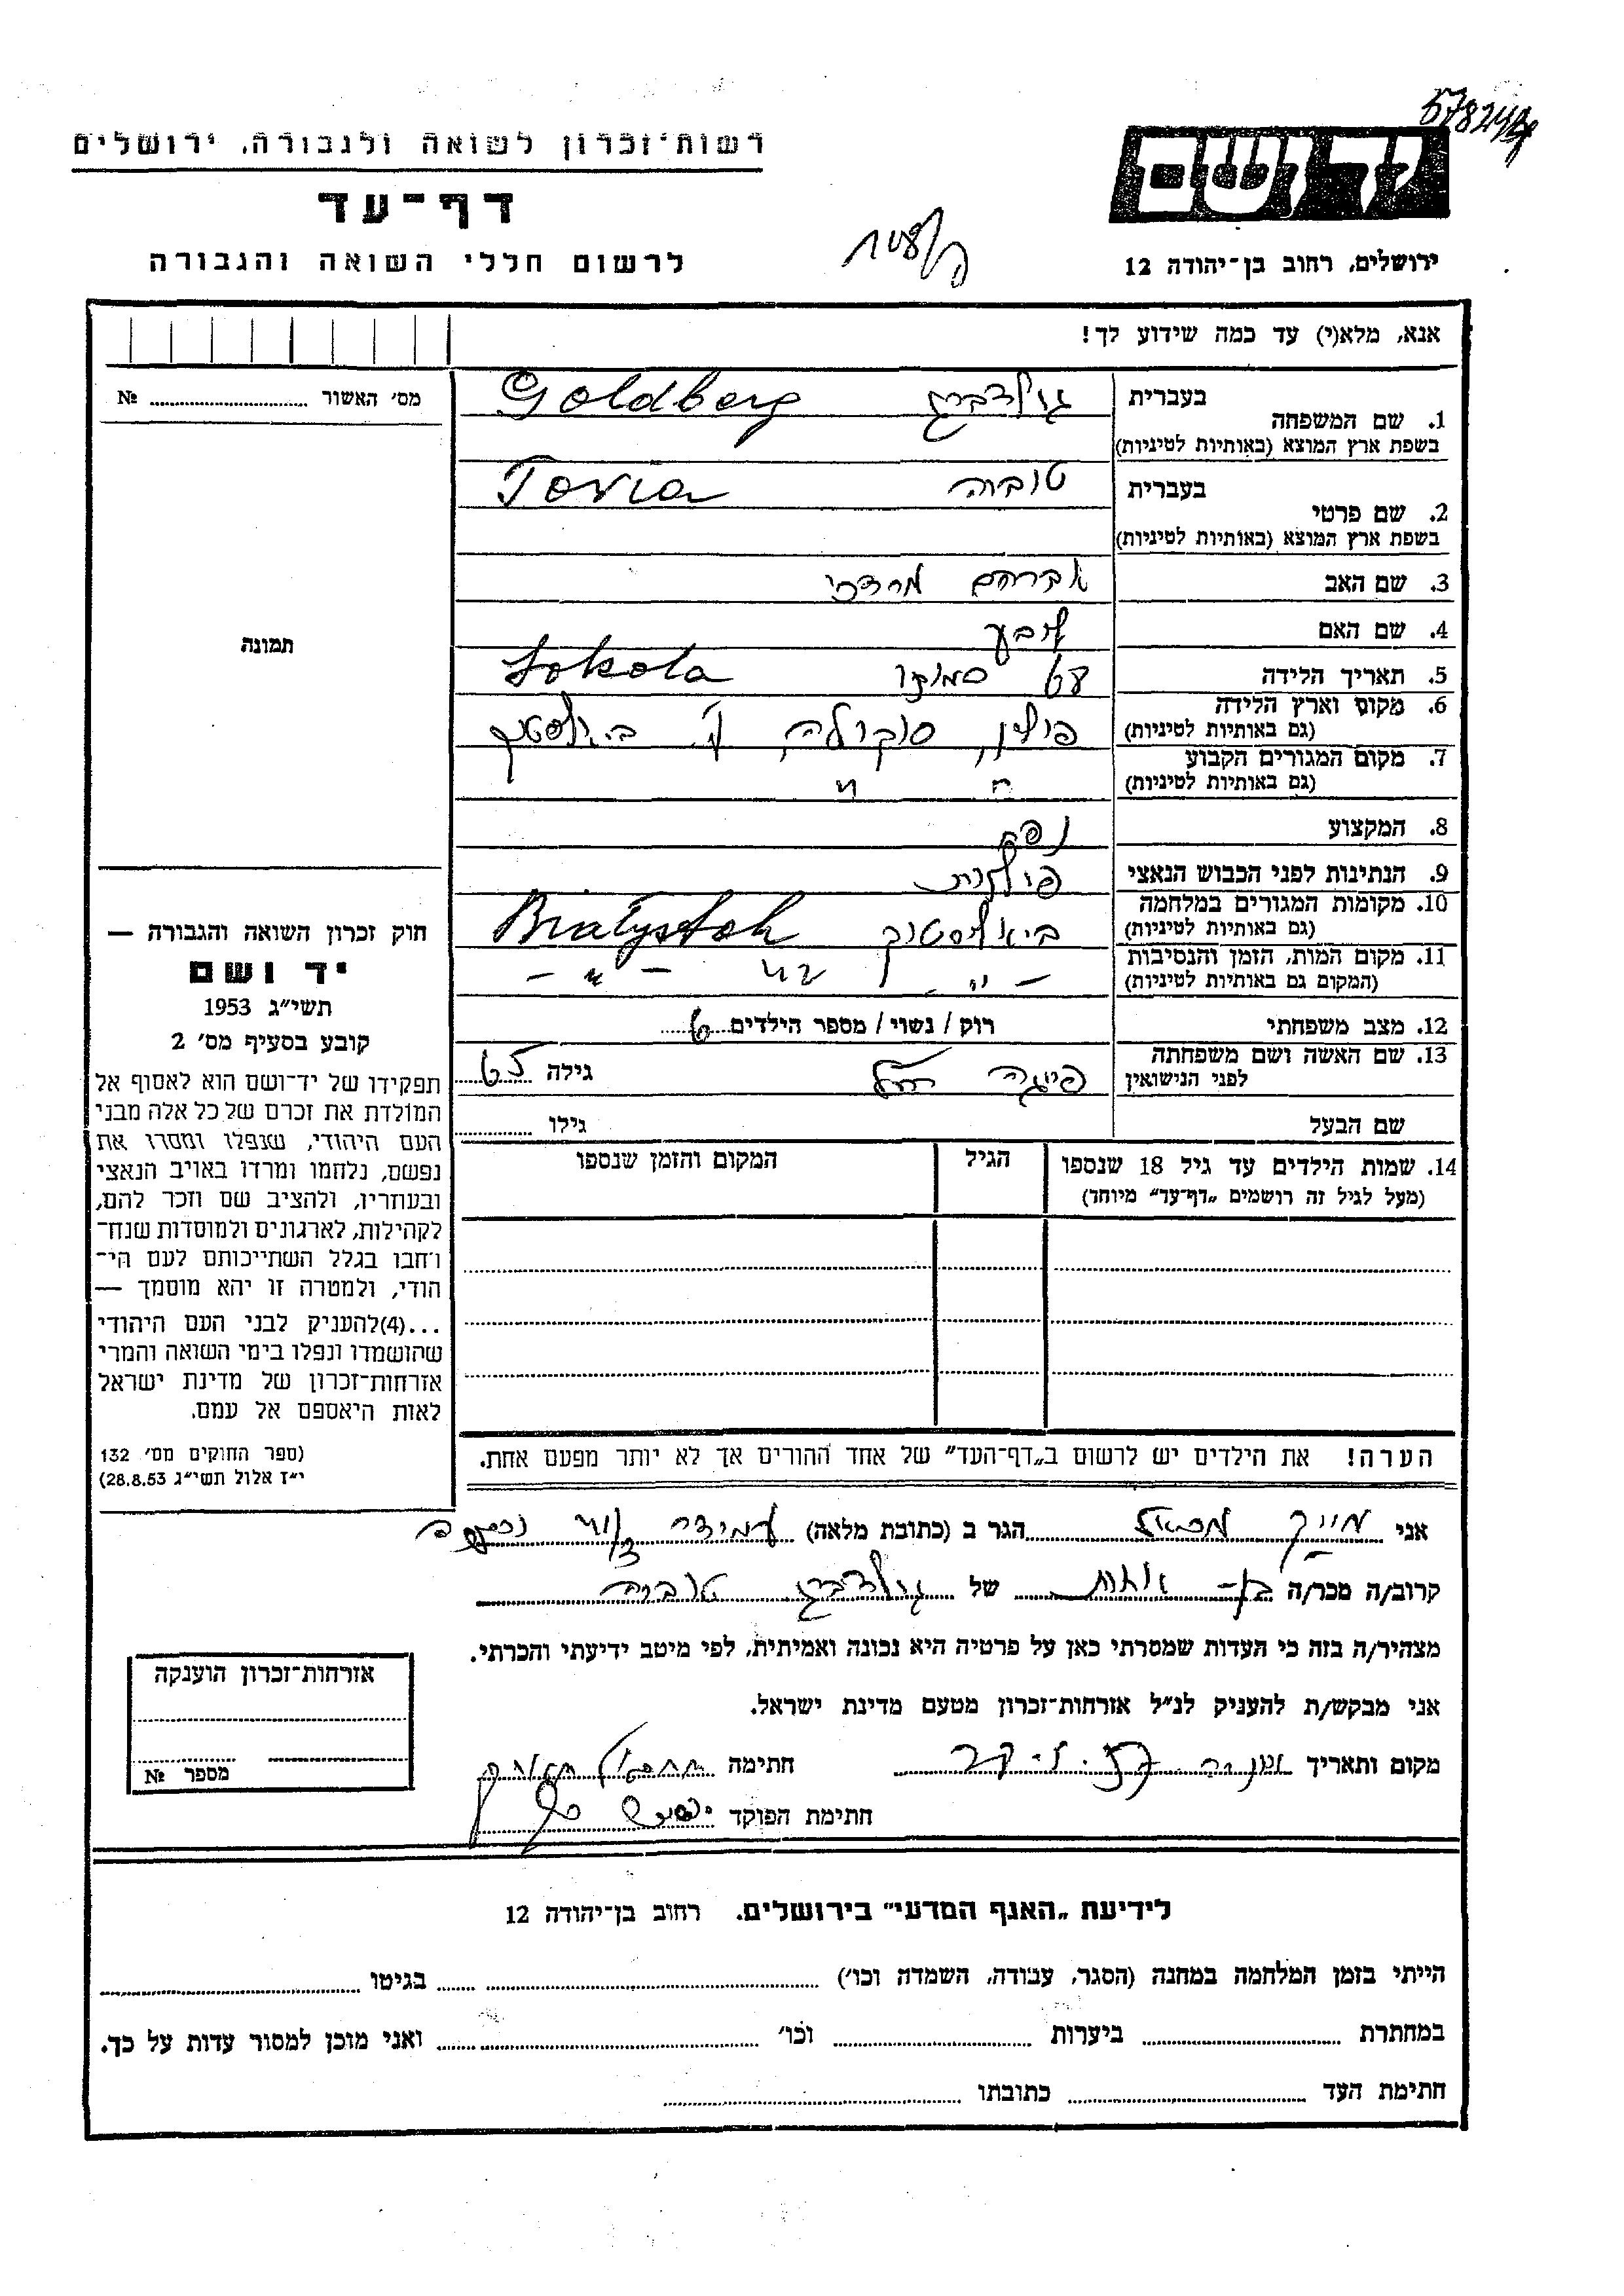 רשות־זכרון לשואה ולגבורה, ירושלים
דף־עד
לרשום חללי השואה והגבורה
ירושלים, רחוב בן־יהודה 12
אנא, מלא(י) עד כמה שידוע לך!
מס׳ האשור № 
1. שם המשפחה
בעברית גולדברג Goldberg
בשפת ארץ המוצא (באותיות לטיניות)
2. שם פרטי
בעברית טוביה Tovia
בשפת ארץ המוצא (באותיות לטיניות)
3. שם האב אברהם מרדכי
4. שם האם
5. תאריך הלידה Sokola
6. מקום וארץ הלידה
(גם באותיות לטיניות) פולין, סוקולה
7. מקום המגורים הקבוע
(גם באותיות לטיניות)
8. המקצוע נפח
9. הנתינות לפני הכבוש הנאצי פולנית
10. מקומות המגורים במלחמה
(גם באותיות לטיניות) ביאליסטוק Białystok
11. מקום המות, הזמן והנסיבות
(המקום גם באותיות לטיניות)
12. מצב משפחתי רוק / נשוי / מספר הילדים 6
13. שם האשה ושם משפחתה
לפני הנישואין פייגה רחל גילה 65
שם הבעל גילו
14. שמות הילדים עד גיל 18 שנספו
(מעל לגיל זה רושמים „דף־עד״ מיוחד)
הגיל
המקום והזמן שנספו
הערה! את הילדים יש לרשום ב„דף־העד״ של אחד ההורים אך לא יותר מפעם אחת.
תמונה
חוק זכרון השואה והגבורה —
יד ושם
תשי״ג 1953
קובע בסעיף מס׳ 2
תפקידו של יד־ושם הוא לאסוף אל
המולדת את זכרם של כל אלה מבני
העם היהודי, שנפלו ומסרו את
נפשם, נלחמו ומרדו באויב הנאצי
ובעוזריו, ולהציב שם וזכר להם,
לקהילות, לארגונים ולמוסדות שנח־
רבו בגלל השתייכותם לעם הי־
הודי, ולמטרה זו יהא מוסמך —
...(4)להעניק לבני העם היהודי
שהושמדו ונפלו בימי השואה והמרי
אזרחות־זכרון של מדינת ישראל
לאות היאספם אל עמם.
(ספר החוקים מס׳ 132
י״ז אלול תשי״ג 28.8.53)
אני הגר ב (כתובת מלאה)
קרוב/ה מכר/ה בן־אחות של גולדברג טוביה
מצהיר/ה בזה כי העדות שמסרתי כאן על פרטיה היא נכונה ואמיתית, לפי מיטב ידיעתי והכרתי.
אני מבקש/ת להעניק לנ״ל אזרחות־זכרון מטעם מדינת ישראל.
מקום ותאריך חתימה
חתימת הפוקד
אזרחות־זכרון הוענקה
מספר №
לידיעת „האגף המדעי״ בירושלים. רחוב בן־יהודה 12
הייתי בזמן המלחמה במחנה (הסגר, עבודה, השמדה וכו׳) בגיטו
במחתרת ביערות וכו׳ ואני מוכן למסור עדות על כך.
חתימת העד כתובתו